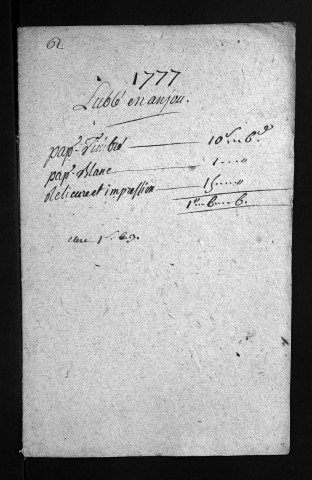 62
1777
Lublé en anjou.
pap.r Timbré 10 s 6 d
pap.r blanc 1 "
Relieure et impression 15 "
1 " 6 " 6.